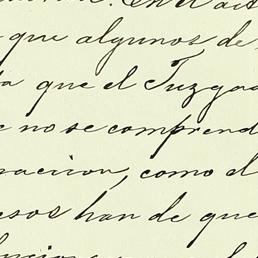 En el act
que algunos de
que el Juzga
no se comprend
racion, como el
esos han de que